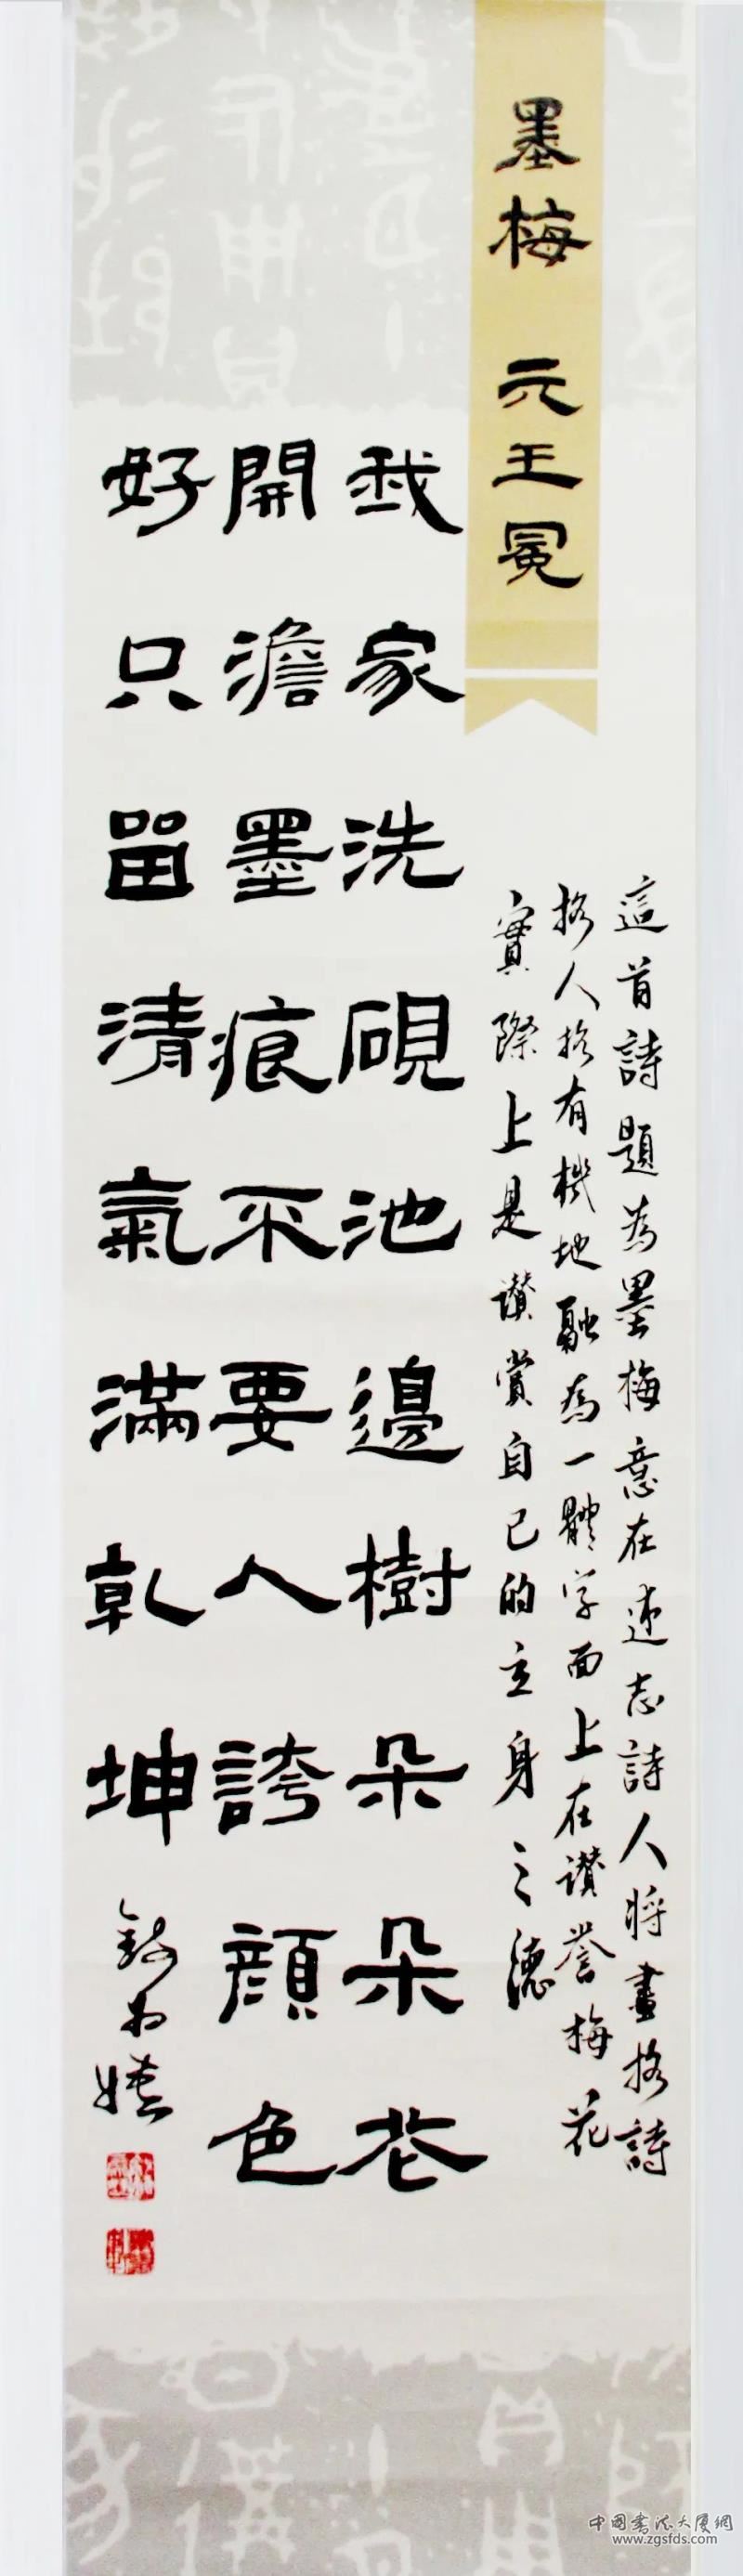 墨梅 元王冕
這首詩題為墨梅意在述志詩人將畫格詩
格人格有機地融為一體字面上在讚譽梅花
實際上是讚賞自己的立身之德
我家洗硯池邊樹朵朵花
開澹墨痕不要人誇顏色
好只留清氣滿乾坤
中国书法大厦网
www.zgsfds.com